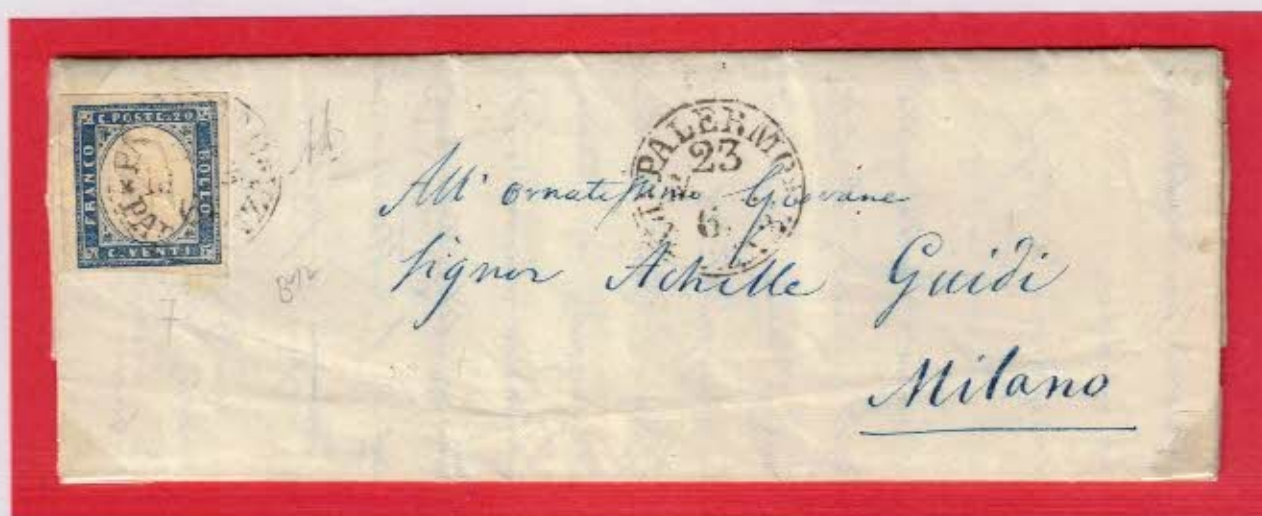 C. POSTE. 20
FRANCO
BOLLO
C. VENTI
PALERMO
23
6
All' ornatissimo Giovane
Signor Achille Guidi
Milano